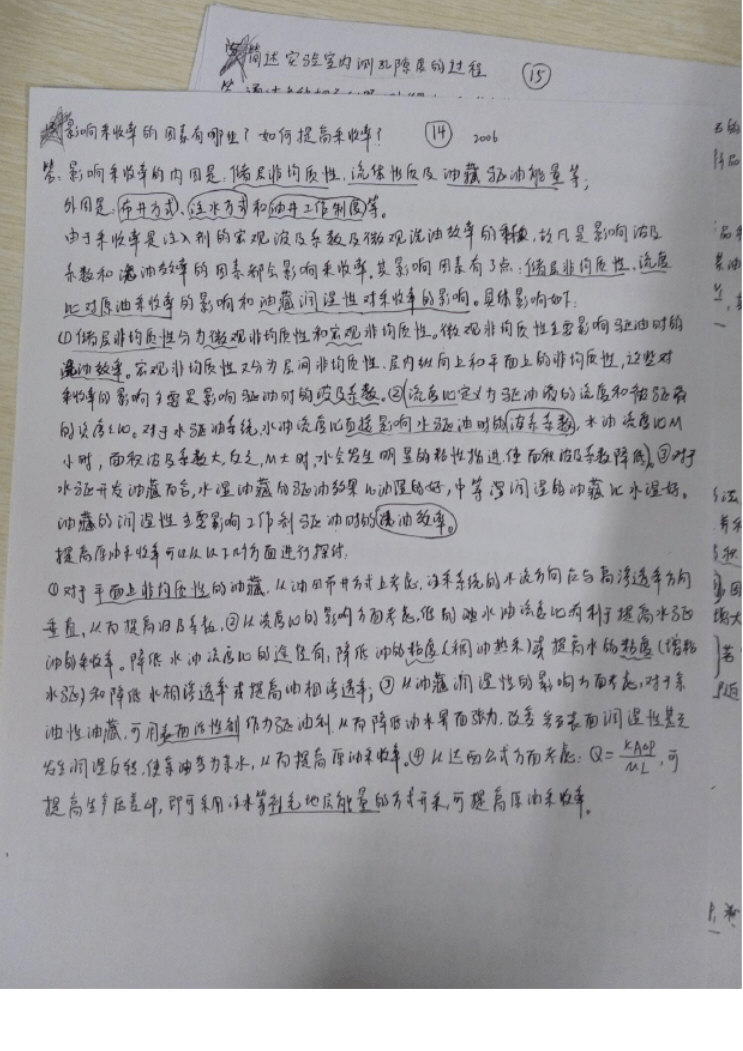 简述实验室内测孔隙度的过程 ⑮
影响采收率的因素有哪些?如何提高采收率? ⑭ 2006
答:影响采收率的内因是,储层非均质性,流体性质及油藏驱油能量等;
外因是:布井方式、注水方式和油井工作制度等。
由于采收率是注入剂的宏观波及系数及微观洗油效率的,故凡是影响波及
系数和洗油效率的因素都会影响采收率,其影响因素有3点:储层非均质性,流度
比对原油采收率的影响和油藏润湿性对采收率的影响。具体影响如下:
(1)储层非均质性分为微观非均质性和宏观非均质性。微观非均质性主要影响驱油时的
洗油效率。宏观非均质性又分为层间非均质性、层内纵向上和平面上的非均质性,这些对
采收率的影响主要是影响驱油时的波及系数。②流度比定义为驱油液的流度和被驱液
的流度之比。对于水驱油系统,水油流度比直接影响水驱油时的波及系数,水油流度比M
小时,面积波及系数大,反之,M大时,水会发生明显的粘性指进,使面积波及系数降低。③对于
水驱开发油藏而言,水湿油藏的驱油效果比油湿的好,中等润湿的油藏比水湿好。
油藏的润湿性主要影响工作剂驱油时的洗油效率。
提高原油采收率可以从以下几方面进行探讨:
①对于平面上非均质性的油藏,从油田布井方式上考虑,注采系统的水流方向应与高渗透率方向
垂直,从而提高波及系数,②从流度比的影响方面考虑,低的水油流度比有利于提高水驱
油的采收率。降低水油流度比的途径有,降低油的粘度(稠油热采)或提高水的粘度(增粘
水驱)和降低水相渗透率或提高油相渗透率;③从油藏润湿性的影响方面考虑,对于亲
油性油藏,可用表面活性剂作为驱油剂,从而降低油水界面张力,改变岩石表面润湿性甚至
发生润湿反转,使亲油变为亲水,从而提高原油采收率。④从达西公式方面考虑:Q=KAΔP/ML,可
提高生产压差ΔP,即可采用注水等补充地层能量的方式开采,可提高原油采收率。